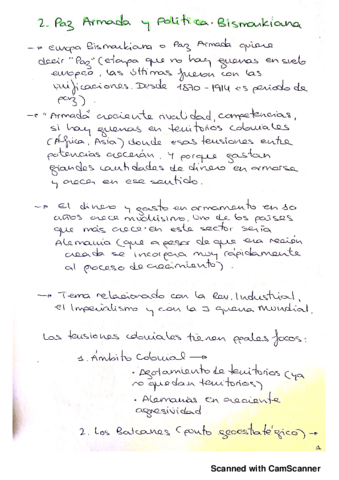 2. Paz Armada y Política Bismarkiana
→ Europa Bismarkiana o Paz Armada quiere
decir "Paz" (etapa que no hay guerras en suelo
europeo, las últimas fueron con las
unificaciones. Desde 1870-1914 es periodo de
paz).
→ "Armada" creciente rivalidad, competencias,
si hay guerras en territorios coloniales
(África, Asia) donde esas tensiones entre
potencias crecerán. Y porque gastan
grandes cantidades de dinero en armarse
y crecer en ese sentido.
→ El dinero y gasto en armamento en 30
años crece muchísimo. Uno de los países
que más crece en este sector sería
Alemania (que a pesar de que era recién
creada se incorpora muy rápidamente
al proceso de crecimiento).
→ Tema relacionado con la Rev. Industrial,
el Imperialismo y con la I guerra Mundial.
Las tensiones coloniales tienen focos:
1. Ámbito Colonial →
• Agotamiento de territorios (ya
no quedan territorios)
• Alemanias en creciente
agresividad
2. Los Balcanes (punto geoestratégico) →
Scanned with CamScanner